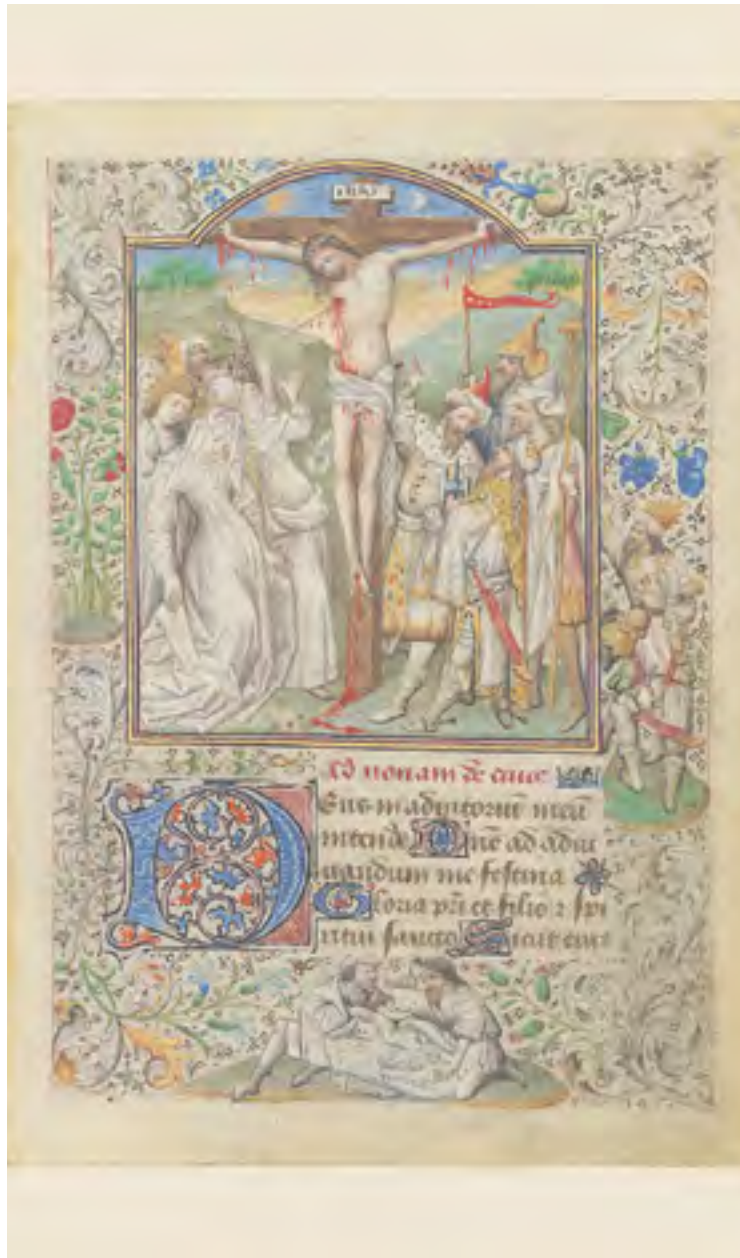 INRI
Ad nonam de cruce
Deus in adiutoriū meū
intende Dn̄e ad adiu
uandum me festina
Gloria pr̄i et filio ⁊ spi
ritui sancto Sicut erat